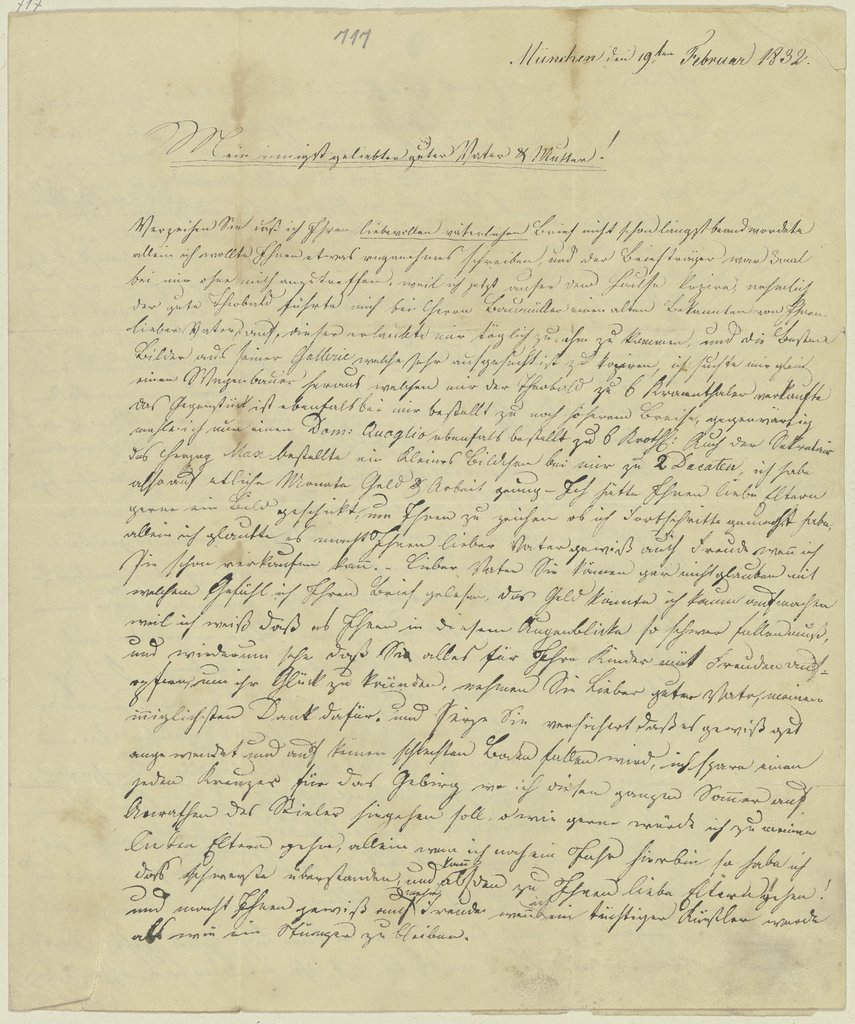 717
717
München den 19ten Februar 1832.
Mein innigst geliebter guter Vater & Mutter!
Verzeihen Sie daß ich Ihren liebevollen väterlichen Brief nicht schon längst beandwordete
allein ich wollte Ihnen etwas angenehmes schreiben, und der Briefträger war 3mal
bei mir ohne mich anzutreffen, weil ich jetzt außer dem Hause kopire, nehmlich
der gute Theobald führte mich bei Herrn einem alten Bekannten von Ihnen
lieber Vater, auf, dieser erlaubte mir täglich zu ihm zu kommen, und die Besten
Bilder aus seiner Gallerie welche sehr ausgesucht ist zu kopiren, ich suchte mir gleich
einen Wagenbauer heraus welchen mir der Theobald zu 6 Kronthaler verkaufte
das Gegenstück ist ebenfals bei mir bestellt zu noch höherem Preise, gegenwärtig
mahle ich nun einen Dom: Quaglio ebenfals bestellt zu 6 Auch der Sekretair
des Herzog Max bestellte ein kleines Bildchen bei mir zu 2 Ducaten, ich habe
also auf etliche Monate Geld & Arbeit genug – Ich hätte Ihnen liebe Eltern
gerne ein Bild geschickt, um Ihnen zu zeichen ob ich Fortschritte gemacht habe,
allein ich glaubte es macht Ihnen lieber Vater gewiß auch Freude wenn ich
Sie schon verkaufen kan. – Lieber Vater Sie könen gar nicht glauben mit
welchem Gefühl ich Ihren Brief gelesen, das Geld konnte ich kaum aufmachen
weil ich weiß daß es Ihnen in diesem Augenblicke so schwer fallen muß,
und wiederum sehe daß Sie alles für Ihre Kinder mit Freuden auf-
opfern, um ihr Glück zu gründen, nehmen Sie lieber guter Vater, meinen
innigsten Dank dafür, und seyn Sie versichert daß es gewiß gut
angewendet und auf keinen schlechten Boden fallen wird, ich spare einen
jeden Kreuzer für das Gebirg wo ich diesen ganzen Sommer auf
Anrathen des Stieler hingehen soll, o wie gerne würde ich zu meinen
lieben Eltern gehen, allein wen ich noch ein Jahr hierbin so habe ich
das schwerste überstanden, und kann alsden zu Ihnen liebe Eltern gehen!
und macht Ihnen gewiß auch mehr Freude wenn ich ein tüchtiger Künstler werde
als wie ein Stümper zu bleiben.